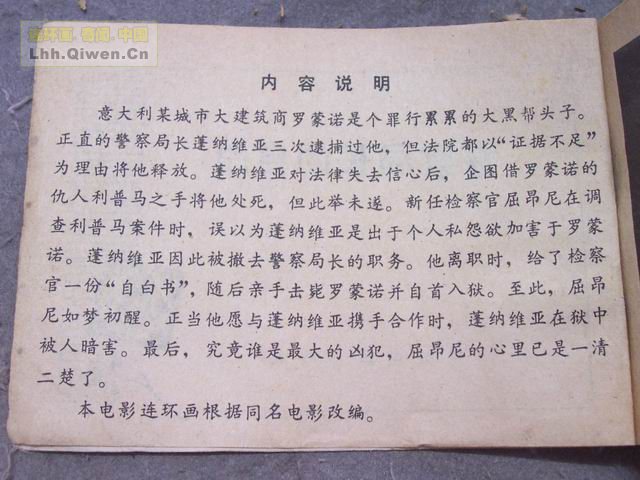 连环画.看阅.中国
Lhh.Qiwen.Cn
内容说明
意大利某城市大建筑商罗蒙诺是个罪行累累的大黑帮头子。
正直的警察局长蓬纳维亚三次逮捕过他，但法院都以“证据不足”
为理由将他释放。蓬纳维亚对法律失去信心后，企图借罗蒙诺的
仇人利普马之手将他处死，但此举未遂。新任检察官屈昂尼在调
查利普马案件时，误以为蓬纳维亚是出于个人私怨欲加害于罗蒙
诺。蓬纳维亚因此被撤去警察局长的职务。他离职时，给了检察
官一份“自白书”，随后亲手击毙罗蒙诺并自首入狱。至此，屈昂
尼如梦初醒。正当他愿与蓬纳维亚携手合作时，蓬纳维亚在狱中
被人暗害。最后，究竟谁是最大的凶犯，屈昂尼的心里已是一清
二楚了。
本电影连环画根据同名电影改编。